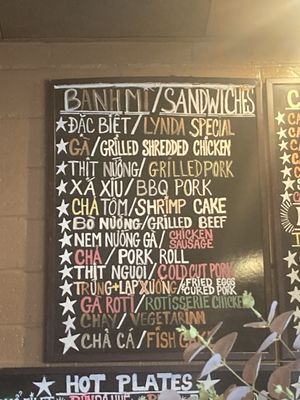 BANH MI / SANDWICHES
ĐẶC BIỆT / LYNDA SPECIAL
GÀ / GRILLED SHREDDED CHICKEN
THỊT NƯỚNG / GRILLED PORK
XÁ XÍU / BBQ PORK
CHẢ TÔM / SHRIMP CAKE
BÒ NƯỚNG / GRILLED BEEF
NEM NƯỚNG GÀ / CHICKEN SAUSAGE
CHẢ / PORK ROLL
THỊT NGUỘI / COLD CUT PORK
TRỨNG + LẠP XƯỞNG / FRIED EGGS CURED PORK
GÀ ROTI / ROTISSERIE CHICKEN
CHAY / VEGETARIAN
CHẢ CÁ / FISH CAKE
HOT PLATES